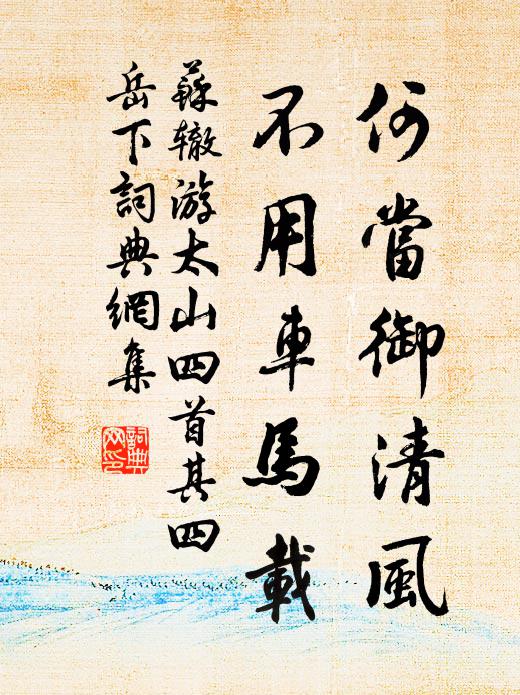 何當御清風
不用車馬載
蘇辙游太山四首其四
岳下詞典網集
詞典網印